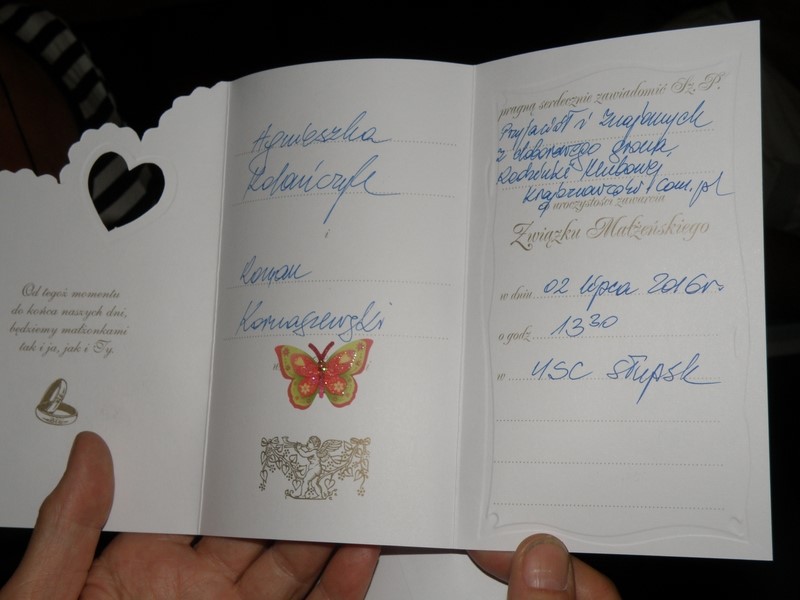 Od tegoż momentu
do końca naszych dni,
będziemy małżonkami
tak i ja, jak i Ty.
Agnieszka
Kołończyk
i
Roman
Kornaszewski
pragną serdecznie zawiadomić Sz. P.
Przyjaciół i Znajomych
z doborowego grona
Rodzinki Klubowej
Krajoznawców com.pl
o uroczystości zawarcia
Związku Małżeńskiego
w dniu 02 lipca 2016r.
o godz. 13 30
w USC Słupsk